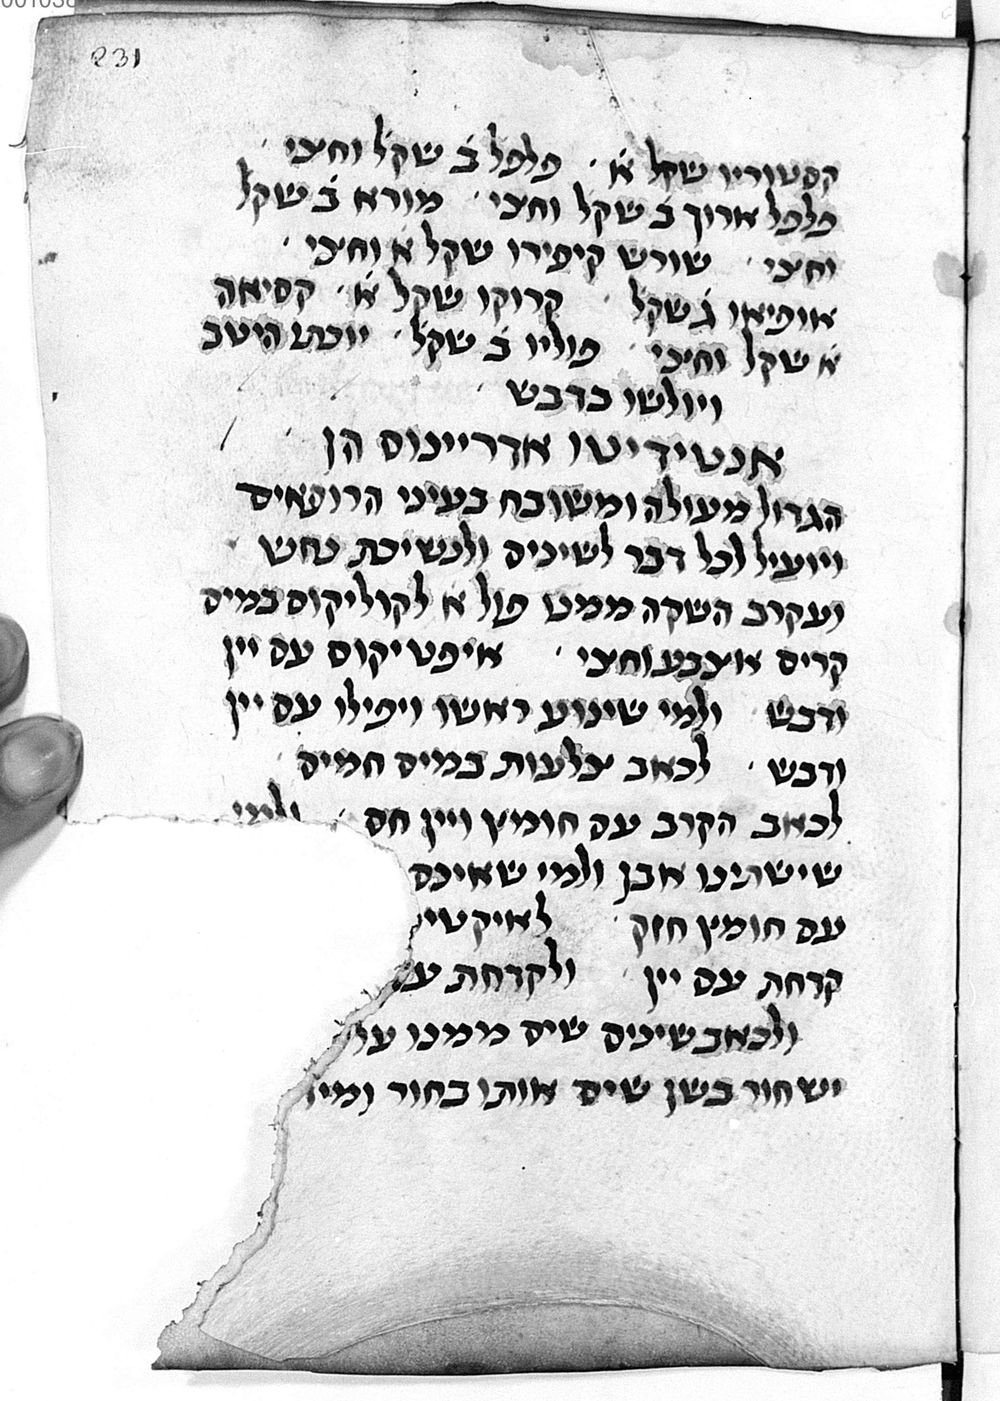 231
קסטוריו שקל א׳ · פלפל ב׳ שקל וחצי ·
פלפל ארוך ב׳ שקל וחצי · מורא ב׳ שקל
וחצי · שורש קיפירו שקל א׳ וחצי ·
אופיאו ג׳ שקל · קרוקו שקל א׳ · קסיאה
א׳ שקל וחצי · פוליו ב׳ שקל · יוכתו היטב
ויולשו בדבש ·
אנטידיטו אדריינוס הן ·
הגדול מעולה ומשובח בעיני הרופאים
ויועיל לכל דבר לשינים ולנשיכת נחש ·
ועקרב השקה ממט פול א לקוליקוס במים
קרים אצבע וחצי · איפטיקוס עם יין
ודבש ולמי שינוע ראשו ויפילו עם יין
ודבש · לכאב צלעות במים חמים ·
לכאב הקרב עם חומץ ויין חם · ולמי
שישתינו אבן ולמי שאינם
עם חומץ חזק · לאיקטי
קדחת עם יין · ולקדחת
ולכאב שינים שים ממנו
יש חור בשן שים אותו בחור